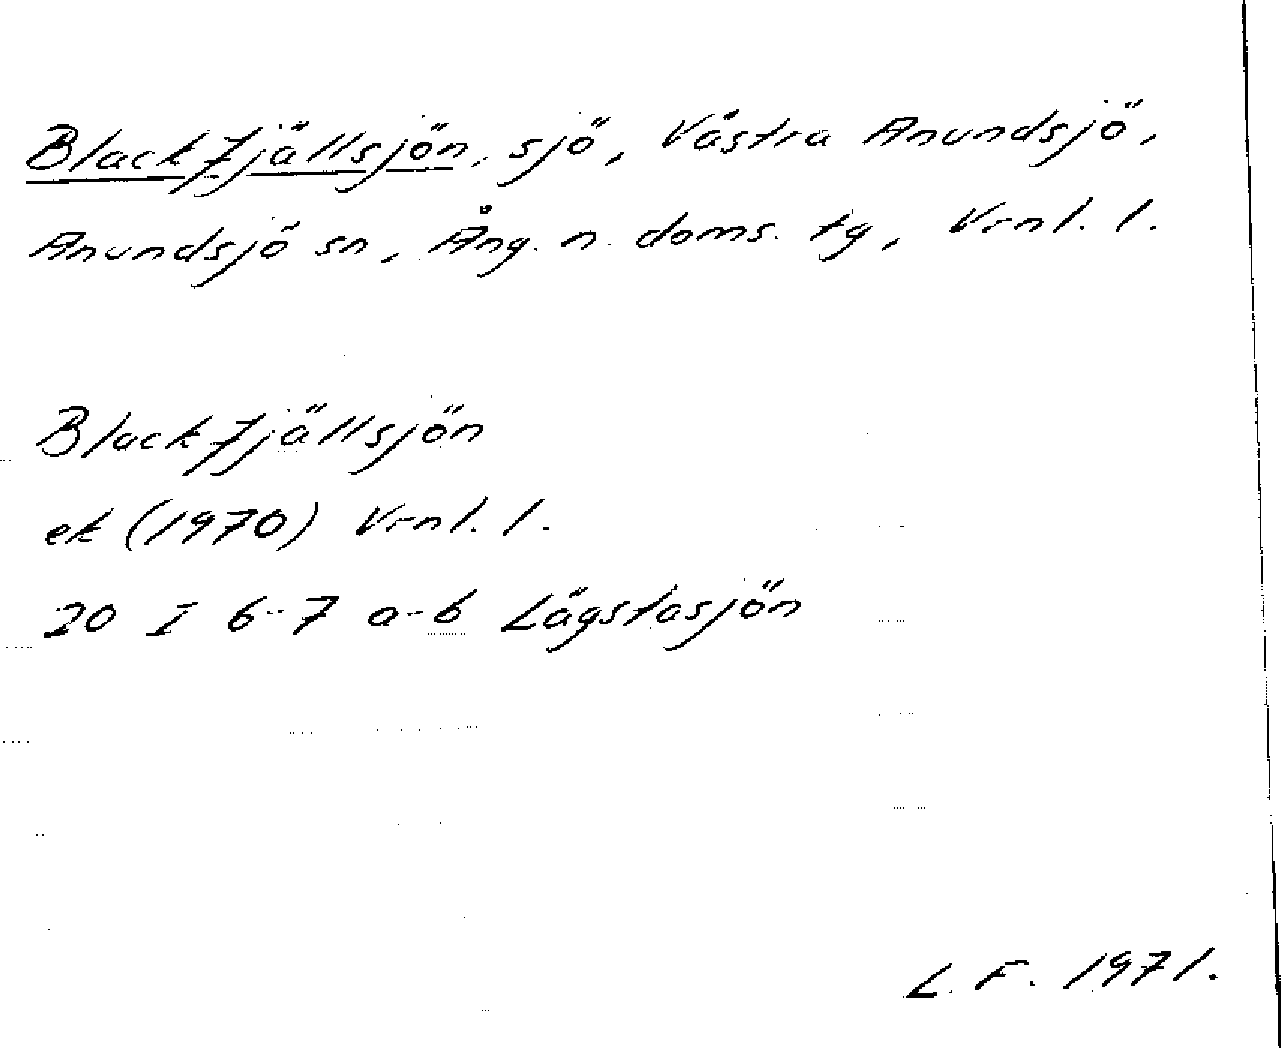 Blackfjällsjön, sjö, Västra Anundsjö,
Anundsjö sn, Ång. n. doms. tg, Vrnl. l.
Blackfjällsjön
ek (1970) Vrnl. l.
20 I 6-7 a-b Lägstasjön
L. F. 1971.